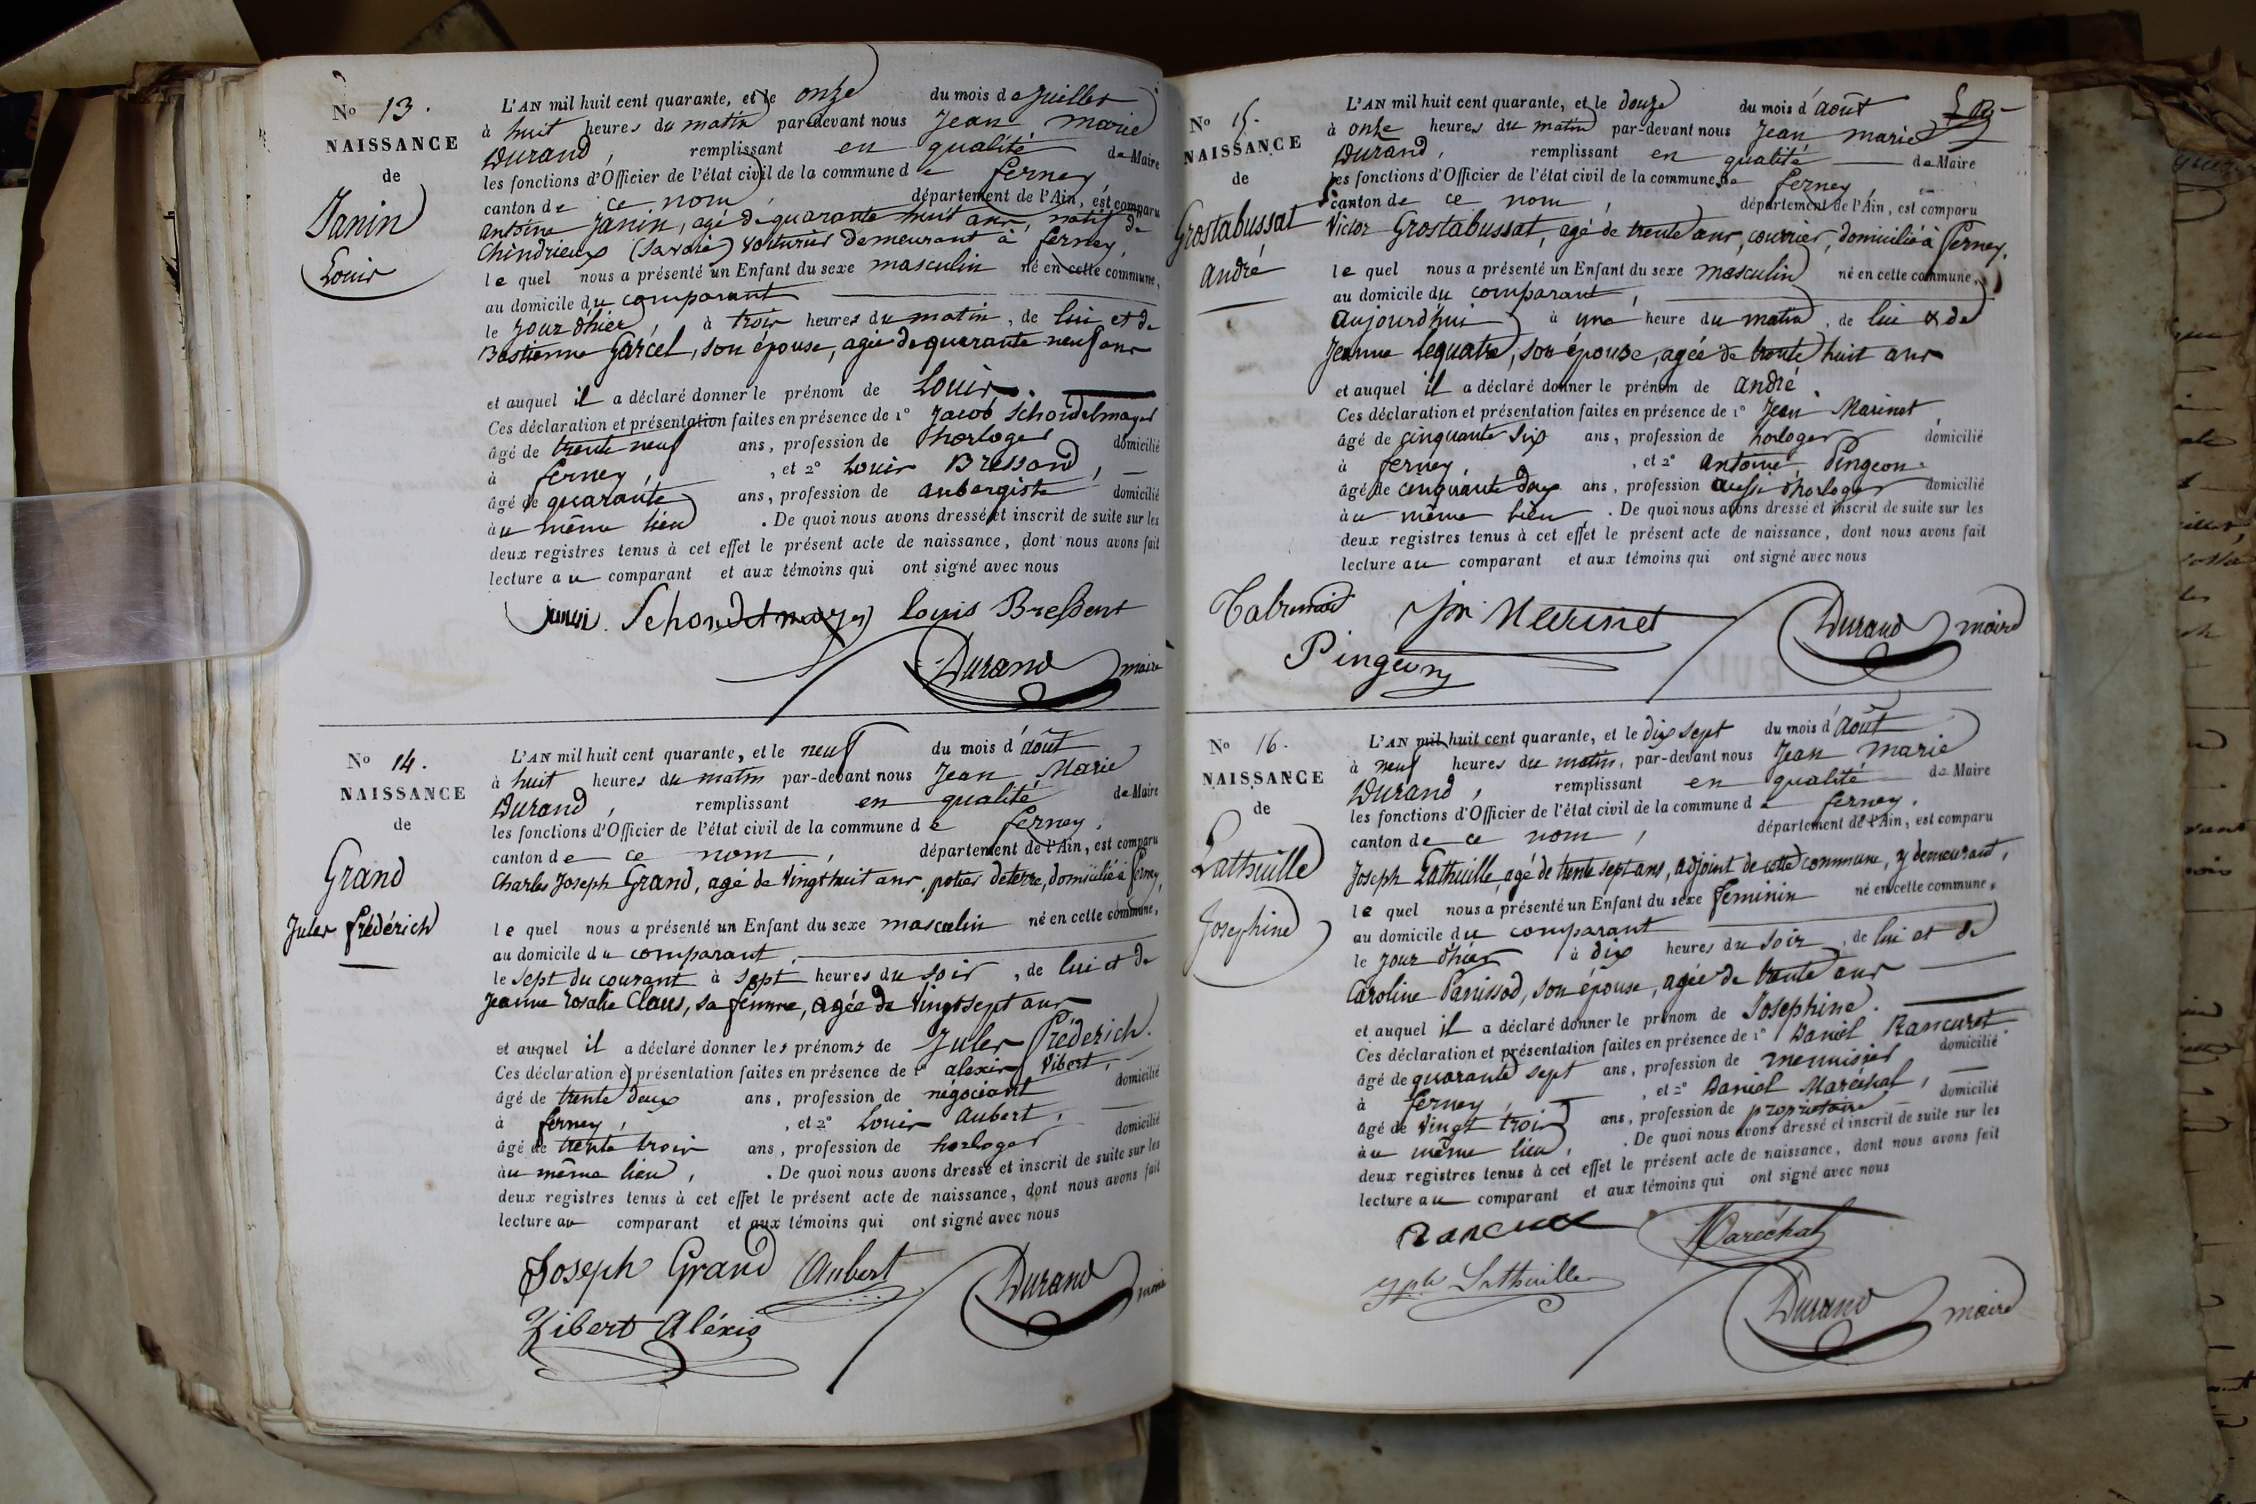 No 13.
NAISSANCE
de
Janin
Louis
L'AN mil huit cent quarante, et le onze du mois de Juillet
à huit heures du matin par-devant nous Jean Marie
Durand, remplissant en qualité de Maire
les fonctions d'Officier de l'état civil de la commune de ferney,
canton de ce nom, département de l'Ain, est comparu
antoine Janin, agé de quarante huit ans, natif de
Chindrieux (Savoie) voiturier demeurant à ferney,
le quel nous a présenté un Enfant du sexe masculin né en cette commune,
au domicile du comparant
le jour d'hier, à trois heures du matin, de lui et de
Bastienne Jarcel, son épouse, agée de quarante neuf ans
et auquel il a déclaré donner le prénom de Louis.
Ces déclaration et présentation faites en présence de 1° Jacob Schondelmayer
âgé de trente neuf ans, profession de horloger domicilié
à ferney, , et 2° Louis Bressand,
âgé de quarante ans, profession de aubergiste domicilié
àu même lieu . De quoi nous avons dressé et inscrit de suite sur les
deux registres tenus à cet effet le présent acte de naissance, dont nous avons fait
lecture au comparant et aux témoins qui ont signé avec nous
Louis Bressent
Durand maire
No 14.
NAISSANCE
de
Grand
Jules frédérich
L'AN mil huit cent quarante, et le neuf du mois d'août
à huit heures du matin par-devant nous Jean Marie
Durand, remplissant en qualité de Maire
les fonctions d'Officier de l'état civil de la commune de ferney,
canton de ce nom, département de l'Ain, est comparu
Charles Joseph Grand, agé de Vingt huit ans, potier de terre, domicilié à ferney,
le quel nous a présenté un Enfant du sexe masculin né en cette commune,
au domicile du comparant,
le sept du courant à sept heures du soir, de lui et de
Jeanne Rosalie Claus, sa femme, agée de Vingt sept ans
et auquel il a déclaré donner les prénoms de Jules frédérich.
Ces déclaration et présentation faites en présence de 1° alexis Vibert,
âgé de trente deux ans, profession de négociant domicilié
à ferney, , et 2° Louis Aubert,
âgé de trente trois ans, profession de horloger domicilié
àu même lieu, . De quoi nous avons dressé et inscrit de suite sur les
deux registres tenus à cet effet le présent acte de naissance, dont nous avons fait
lecture au comparant et aux témoins qui ont signé avec nous
Joseph Grand Aubert
Durand maire
Vibert Aléxis
No 15.
NAISSANCE
de
Grostabussat
André
L'AN mil huit cent quarante, et le douze du mois d'août
à onze heures du matin par-devant nous Jean marie
Durand, remplissant en qualité de Maire
les fonctions d'Officier de l'état civil de la commune de ferney,
canton de ce nom, département de l'Ain, est comparu
Victor Grostabussat, agé de trente ans, courrier, domicilié à ferney.
le quel nous a présenté un Enfant du sexe masculin né en cette commune,
au domicile du comparant,
aujourd'hui à une heure du matin, de lui & de
Jeanne Lequatre, son épouse, agée de trente huit ans
et auquel il a déclaré donner le prénom de andré.
Ces déclaration et présentation faites en présence de 1° Jean Marinet
âgé de cinquante six ans, profession de horloger domicilié
à ferney, , et 2° antoine Pingeon
âgé de cinquante deux ans, profession aussi d'horloger domicilié
àu même lieu, . De quoi nous avons dressé et inscrit de suite sur les
deux registres tenus à cet effet le présent acte de naissance, dont nous avons fait
lecture au comparant et aux témoins qui ont signé avec nous
Marinet
Durand maire
Pingeon
No 16.
NAISSANCE
de
Lathuille
Josephine
L'AN mil huit cent quarante, et le dix sept du mois d'août
à neuf heures du matin, par-devant nous Jean Marie
Durand, remplissant en qualité de Maire
les fonctions d'Officier de l'état civil de la commune de ferney,
canton de ce nom, département de l'Ain, est comparu
Joseph Lathuille, agé de trente sept ans, adjoint de cette commune, y demeurant,
le quel nous a présenté un Enfant du sexe féminin né en cette commune,
au domicile du comparant
le jour d'hier à dix heures du soir, de lui et de
Caroline Panissod, son épouse, agée de trente ans
et auquel il a déclaré donner le prénom de Josephine.
Ces déclaration et présentation faites en présence de 1° Daniel Rancuret
âgé de quarante sept ans, profession de menuisier domicilié
à ferney, , et 2° Daniel Maréchal,
âgé de Vingt trois ans, profession de propriétaire domicilié
àu même lieu, . De quoi nous avons dressé et inscrit de suite sur les
deux registres tenus à cet effet le présent acte de naissance, dont nous avons fait
lecture au comparant et aux témoins qui ont signé avec nous
Maréchal
Jph Lathuille
Durand maire